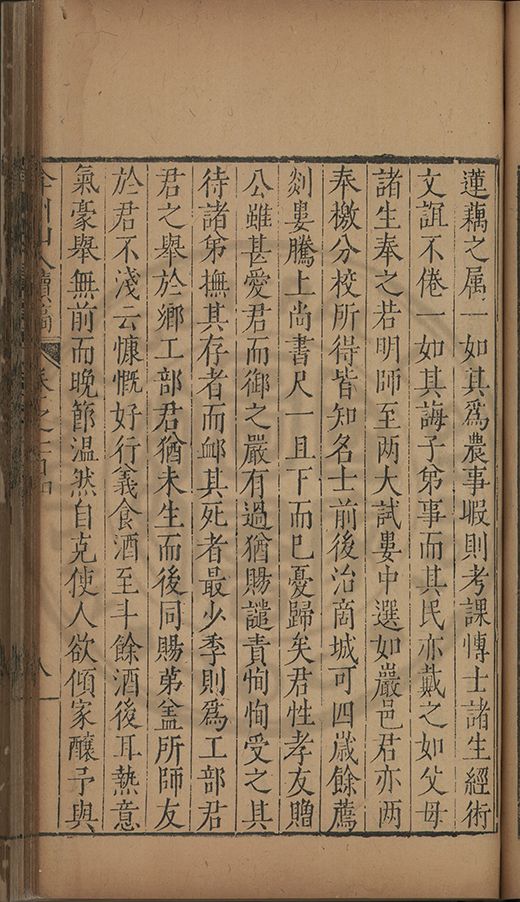 蓮藕之属一如其爲農事暇則考課博士諸生經術
文誼不倦一如其誨子弟事而其民亦戴之如父母
諸生奉之若明師至两大試婁中選如嚴邑君亦两
奉檄分校所得皆知名士前後治商城可四歳餘薦
剡婁騰上尚書尺一且下而巳憂歸矣君性孝友贈
公雖甚愛君而御之嚴有過猶賜譴責恂恂受之其
待諸弟撫其存者而卹其死者最少季則爲工部君
君之舉於鄉工部君猶未生而後同賜第盖所師友
於君不淺云慷慨好行義食酒至斗餘酒後耳熱意
氣豪舉無前而晚節温然自克使人欲傾家釀予與
弇州山人續稿 卷之 八